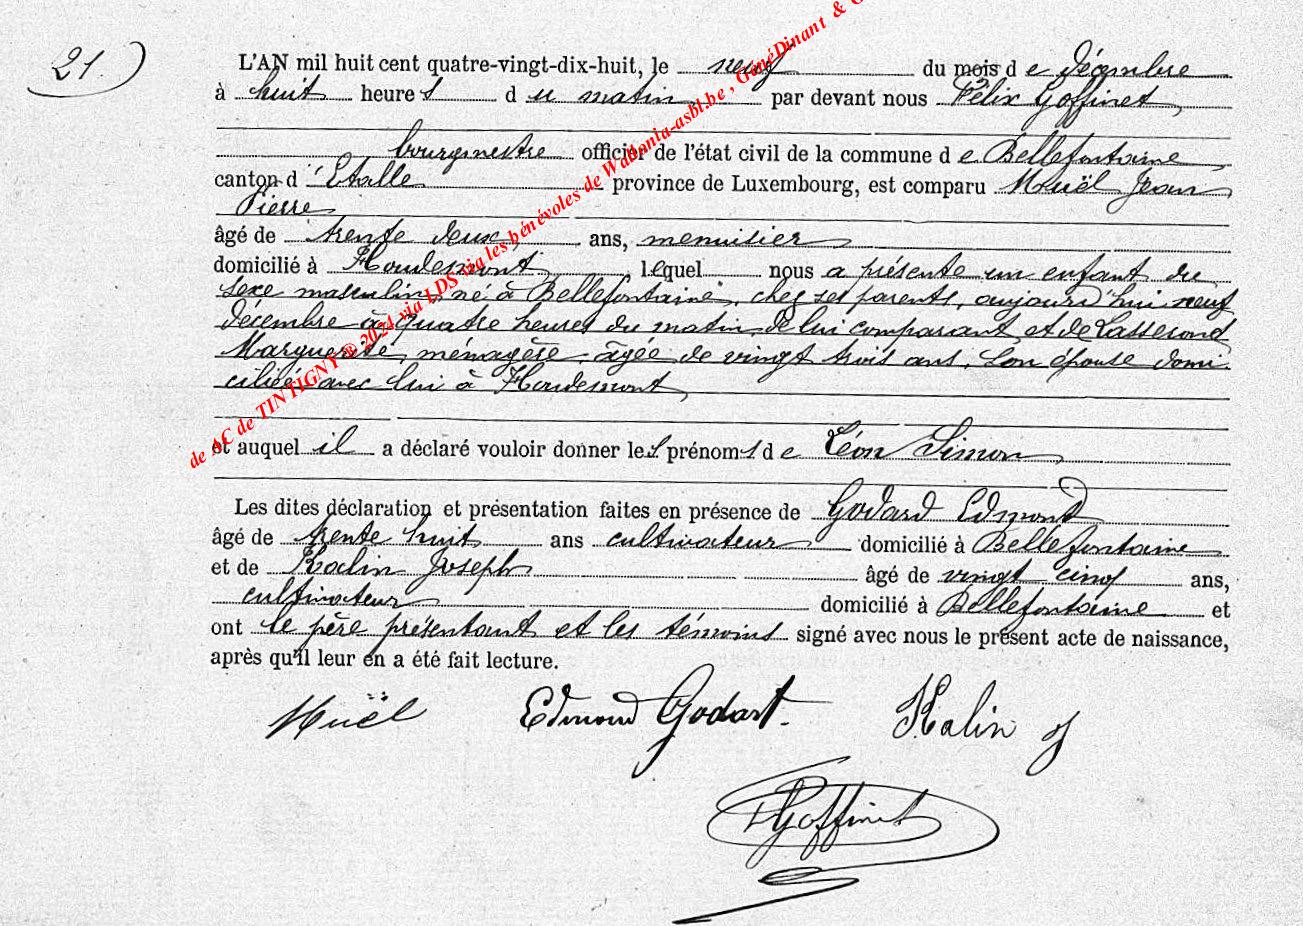 21.)
L'AN mil huit cent quatre-vingt-dix-huit, le neuf du mois de décembre
à huit heures du matin par devant nous Félix Goffinet,
bourgmestre officier de l'état civil de la commune de Bellefontaine
canton d'Etalle province de Luxembourg, est comparu Muël Jean
Pierre
âgé de trente deux ans, menuisier
domicilié à Houdemont, lequel nous a présenté un enfant du
sexe masculin, né à Bellefontaine, chez ses parents, aujourd'hui neuf
décembre à quatre heures du matin de lui comparant et de
Marguerite, ménagère âgée de vingt trois ans, son épouse domi
ciliée avec lui à Houdemont,
et auquel il a déclaré vouloir donner les prénoms de Léon Simon
Les dites déclaration et présentation faites en présence de Godard Edmond
âgé de trente huit ans cultivateur domicilié à Bellefontaine
et de Kalin Joseph âgé de vingt cinq ans,
cultivateur domicilié à Bellefontaine et
ont le père présentant et les témoins signé avec nous le présent acte de naissance,
après qu'il leur en a été fait lecture.
Muël Edmond Godart. Kalin J
Goffinet
de AC de TINTIGNY ® 2024 via LDS via les bénévoles de Wallonia-asbl.be , GénéDinant &